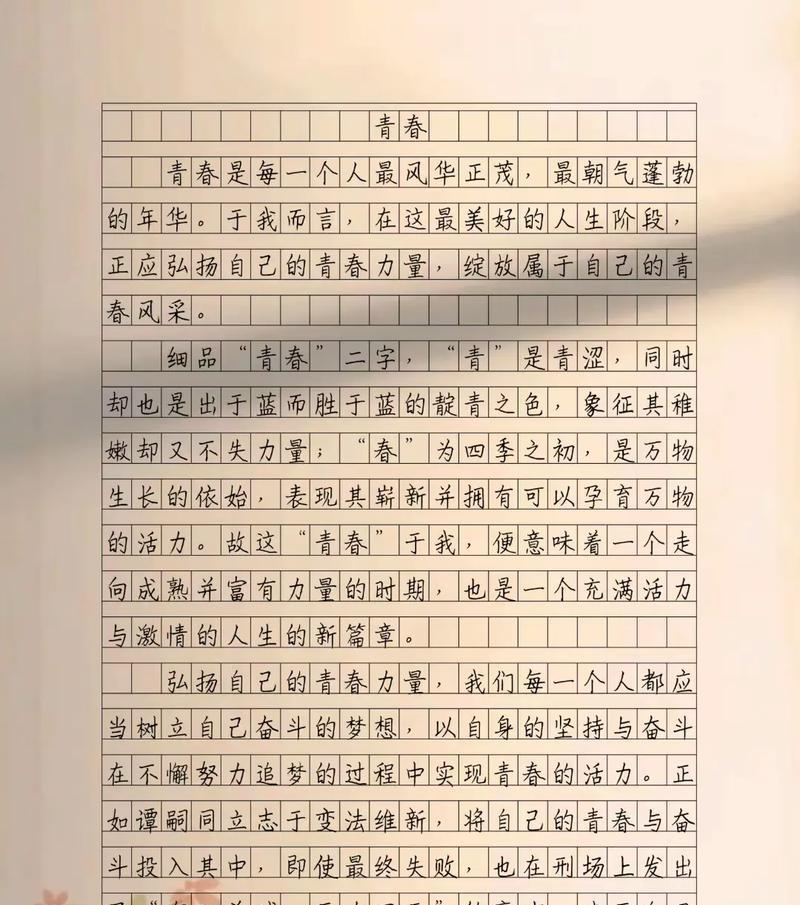 青春
青春是每一个人最风华正茂，最朝气蓬勃
的年华。于我而言，在这最美好的人生阶段，
正应弘扬自己的青春力量，绽放属于自己的青
春风采。
细品“青春”二字，“青”是青涩，同时
却也是出于蓝而胜于蓝的靛青之色，象征其稚
嫩却又不失力量；“春”为四季之初，是万物
生长的依始，表现其崭新并拥有可以孕育万物
的活力。故这“青春”于我，便意味着一个走
向成熟并富有力量的时期，也是一个充满活力
与激情的人生的新篇章。
弘扬自己的青春力量，我们每一个人都应
当树立自己奋斗的梦想，以自身的坚持与奋斗
在不懈努力追梦的过程中实现青春的活力。正
如谭嗣同立志于变法维新，将自己的青春与奋
斗投入其中，即使最终失败，也在刑场上发出